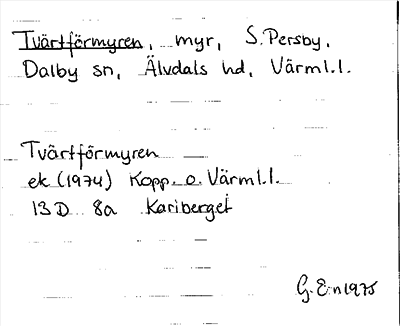 Tvärtförmyren, myr, S. Persby,
Dalby sn, Älvdals hd, Värml.l.
Tvärtförmyren
ek (1974) Kopp. o. Värml.l.
13D 8a Kariberget
G. E-n 1975